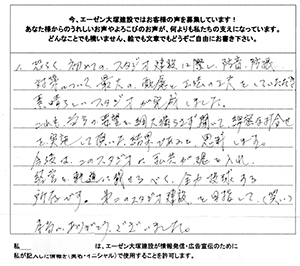 今、エーゼン大塚建設ではお客様の声を募集しています！
あなた様からのうれしいお声やよろこびのお声が、何よりも私たちの支えになっています。
どんなことでも構いません、絵でも文章でもどうぞご自由にお書き下さい。
初めてのスタジオ建設に際し、防音、防振
対策について最大の配慮と工法の工夫をしていただき
素晴らしいスタジオが完成しました。
これも当方の希望を細大漏らさず聞いて、綿密な打合せ
を実施して頂いた結果であると思料します。
今後は、このスタジオに私共が魂を入れ、
経営を軌道に載せるべく、全力投球する
所存です。第二のスタジオ建設を目指して、(笑い)
本当にありがとうございました。
私 は、エーゼン大塚建設が情報発信・広告宣伝のために
私が記入した情報を(実名・イニシャル)で使用することを許可します。